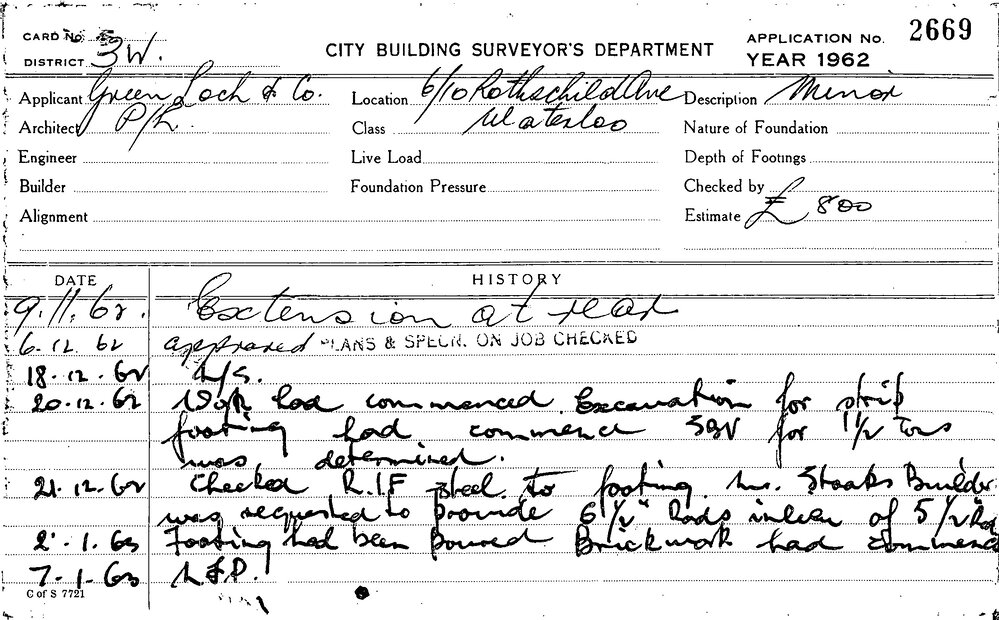 CARD No.
DISTRICT 3W.
CITY BUILDING SURVEYOR'S DEPARTMENT
APPLICATION No. 2669
YEAR 1962
Applicant Green Loch & Co. Location 6/10 Rothschild Ave Description Minor
Architect P/L. Class Waterloo Nature of Foundation
Engineer Live Load Depth of Footings
Builder Foundation Pressure Checked by
Alignment Estimate £ 800
DATE HISTORY
9.11.62. Extension at rear
6.12.62 approved PLANS & SPECN. ON JOB CHECKED
18.12.62
20.12.62 Work had commenced. Excavation for strip
footing had commence for 1 1/2 Tons
was determined.
21.12.62 Checked R.I.F steel to footing. Mr. Builder
was requested to provide 6 1/2" Rods inlieu of 5 1/2"
2.1.63 Footing had been poured Brickwork had
7.1.63
C of S 7721